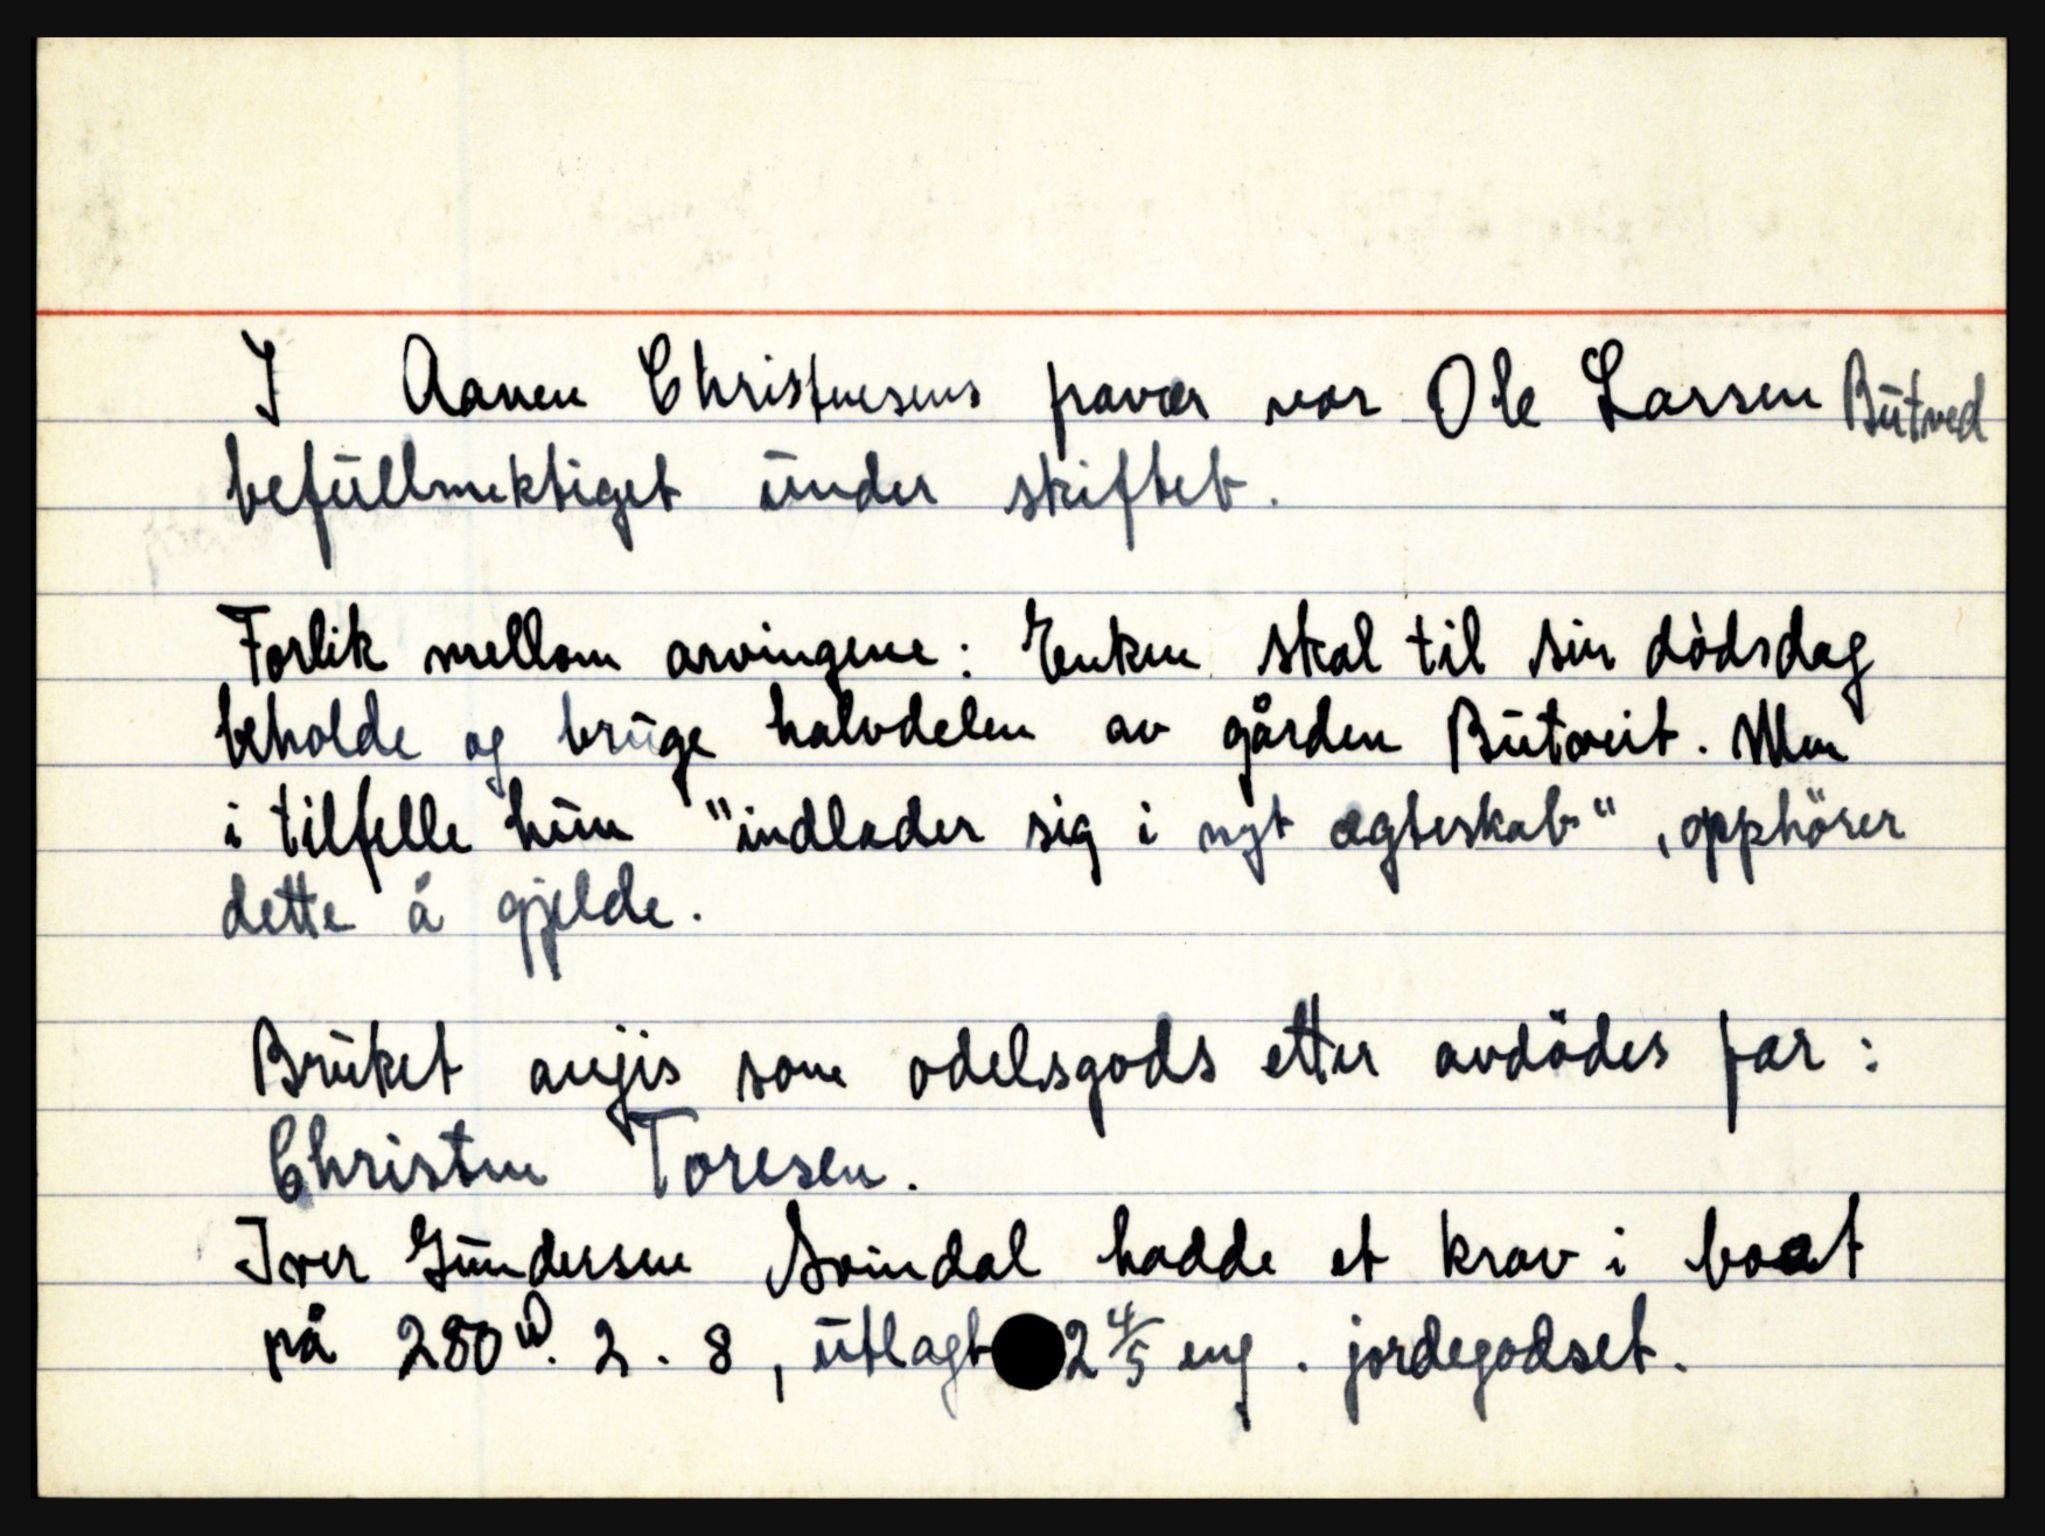 I Aanen Christnesens fravær var Ole Larsen Butved
befullmektiget under skiftet.
Forlik mellom arvingene: Enken skal til sin dödsdag
beholde og bruge halvdelen av gården Butveit. Men
i tilfelle hun "indlader sig i nyt ægteskab", opphörer
dette å gjelde.
Bruket angis som odelsgods etter avdödes far:
Christen Toresen.
Iver Gundersen Svindal hadde et krav i boet
på 280 2. 8, utlagt 2 4/5 eng. jordegodset.